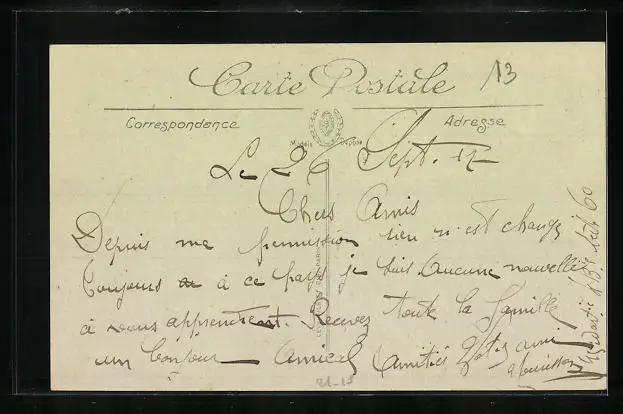 Carte Postale
13
Correspondance
Modèle Déposé
Adresse
Le 26 Sept. 17
Chers Amis
Depuis ma permission rien n'est changé
Toujours à ce pays je suis Aucune nouvelle
à vous apprendre. Recevez toute la famille
un bonjour amical Amitiés Votre ami
21-15